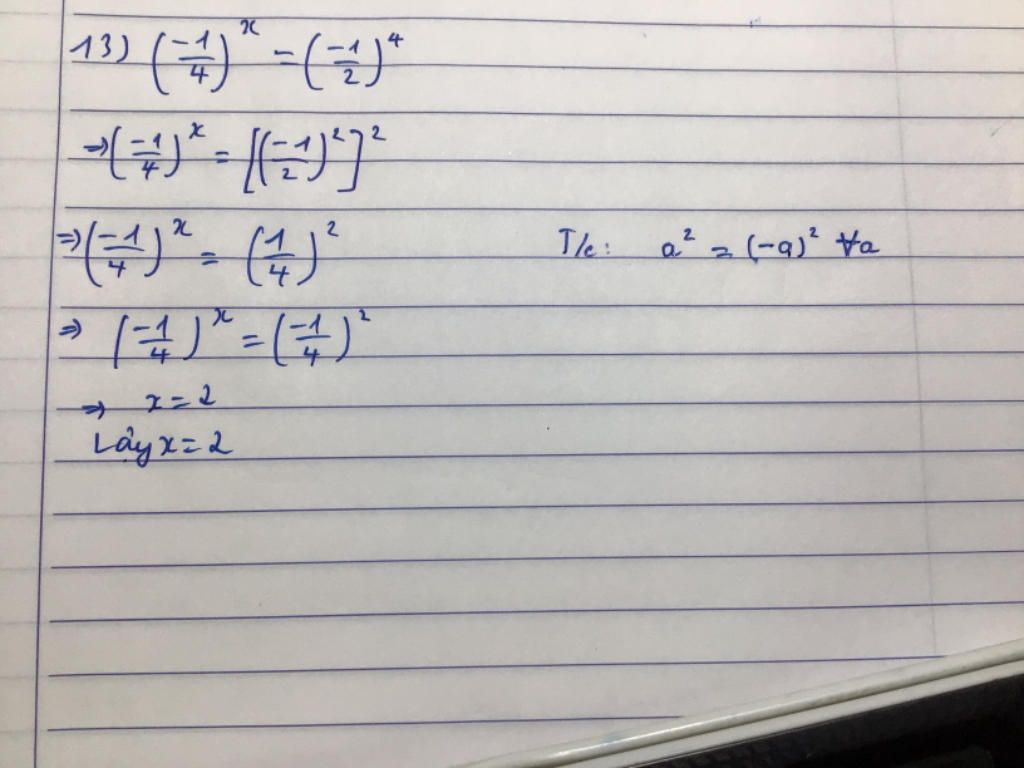 13) (-1/4)^x = (-1/2)^4
⇒ (-1/4)^x = [(-1/2)^2]^2
⇒ (-1/4)^x = (1/4)^2 T/c: a^2 = (-a)^2 ∀a
⇒ (-1/4)^x = (-1/4)^2
⇒ x = 2
Vậy x = 2